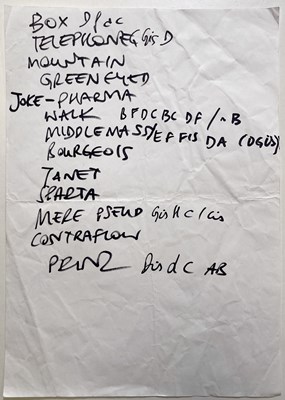 BOX D/a c
TELEPHONE G Gis D
MOUNTAIN
GREEN EYED
JOKE-PHARMA
WALK BFDCBC DF / B
MIDDLEMASS/EF FIS DA (DGIS)
BOURGEOIS
JANET
SPARTA
MERE PSEUD Gis H C / Cis
CONTRAFLOW
PRINZ dC AB